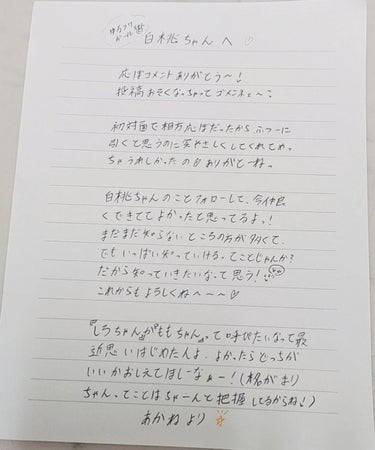 白桃ちゃんへ♡
応ぼコメントありがとう〜!
投稿おそくなっちゃってゴメンネェ〜
初対面で相方応ぼだったからふつーに
引くと思うのに笑やさしくしてくれてめっ
ちゃうれしかったの ありがとーねっ
白桃ちゃんのことフォローして、今仲良
くできててよかったと思ってるよっ!
まだまだ知らないところの方が多くて、
でもいっぱい知っていける。てことじゃんか?
だから知っていきたいなって思う!
これからもよろしくね〜〜〜♡
『しろちゃん』か『ももちゃん』って呼びたいなって最
近思いはじめたんよ。よかったらどっちが
いいかおしえてほしーなぁー!(桃がまり
ちゃんってことはちゃーんと把握してるからね!)
あかねより